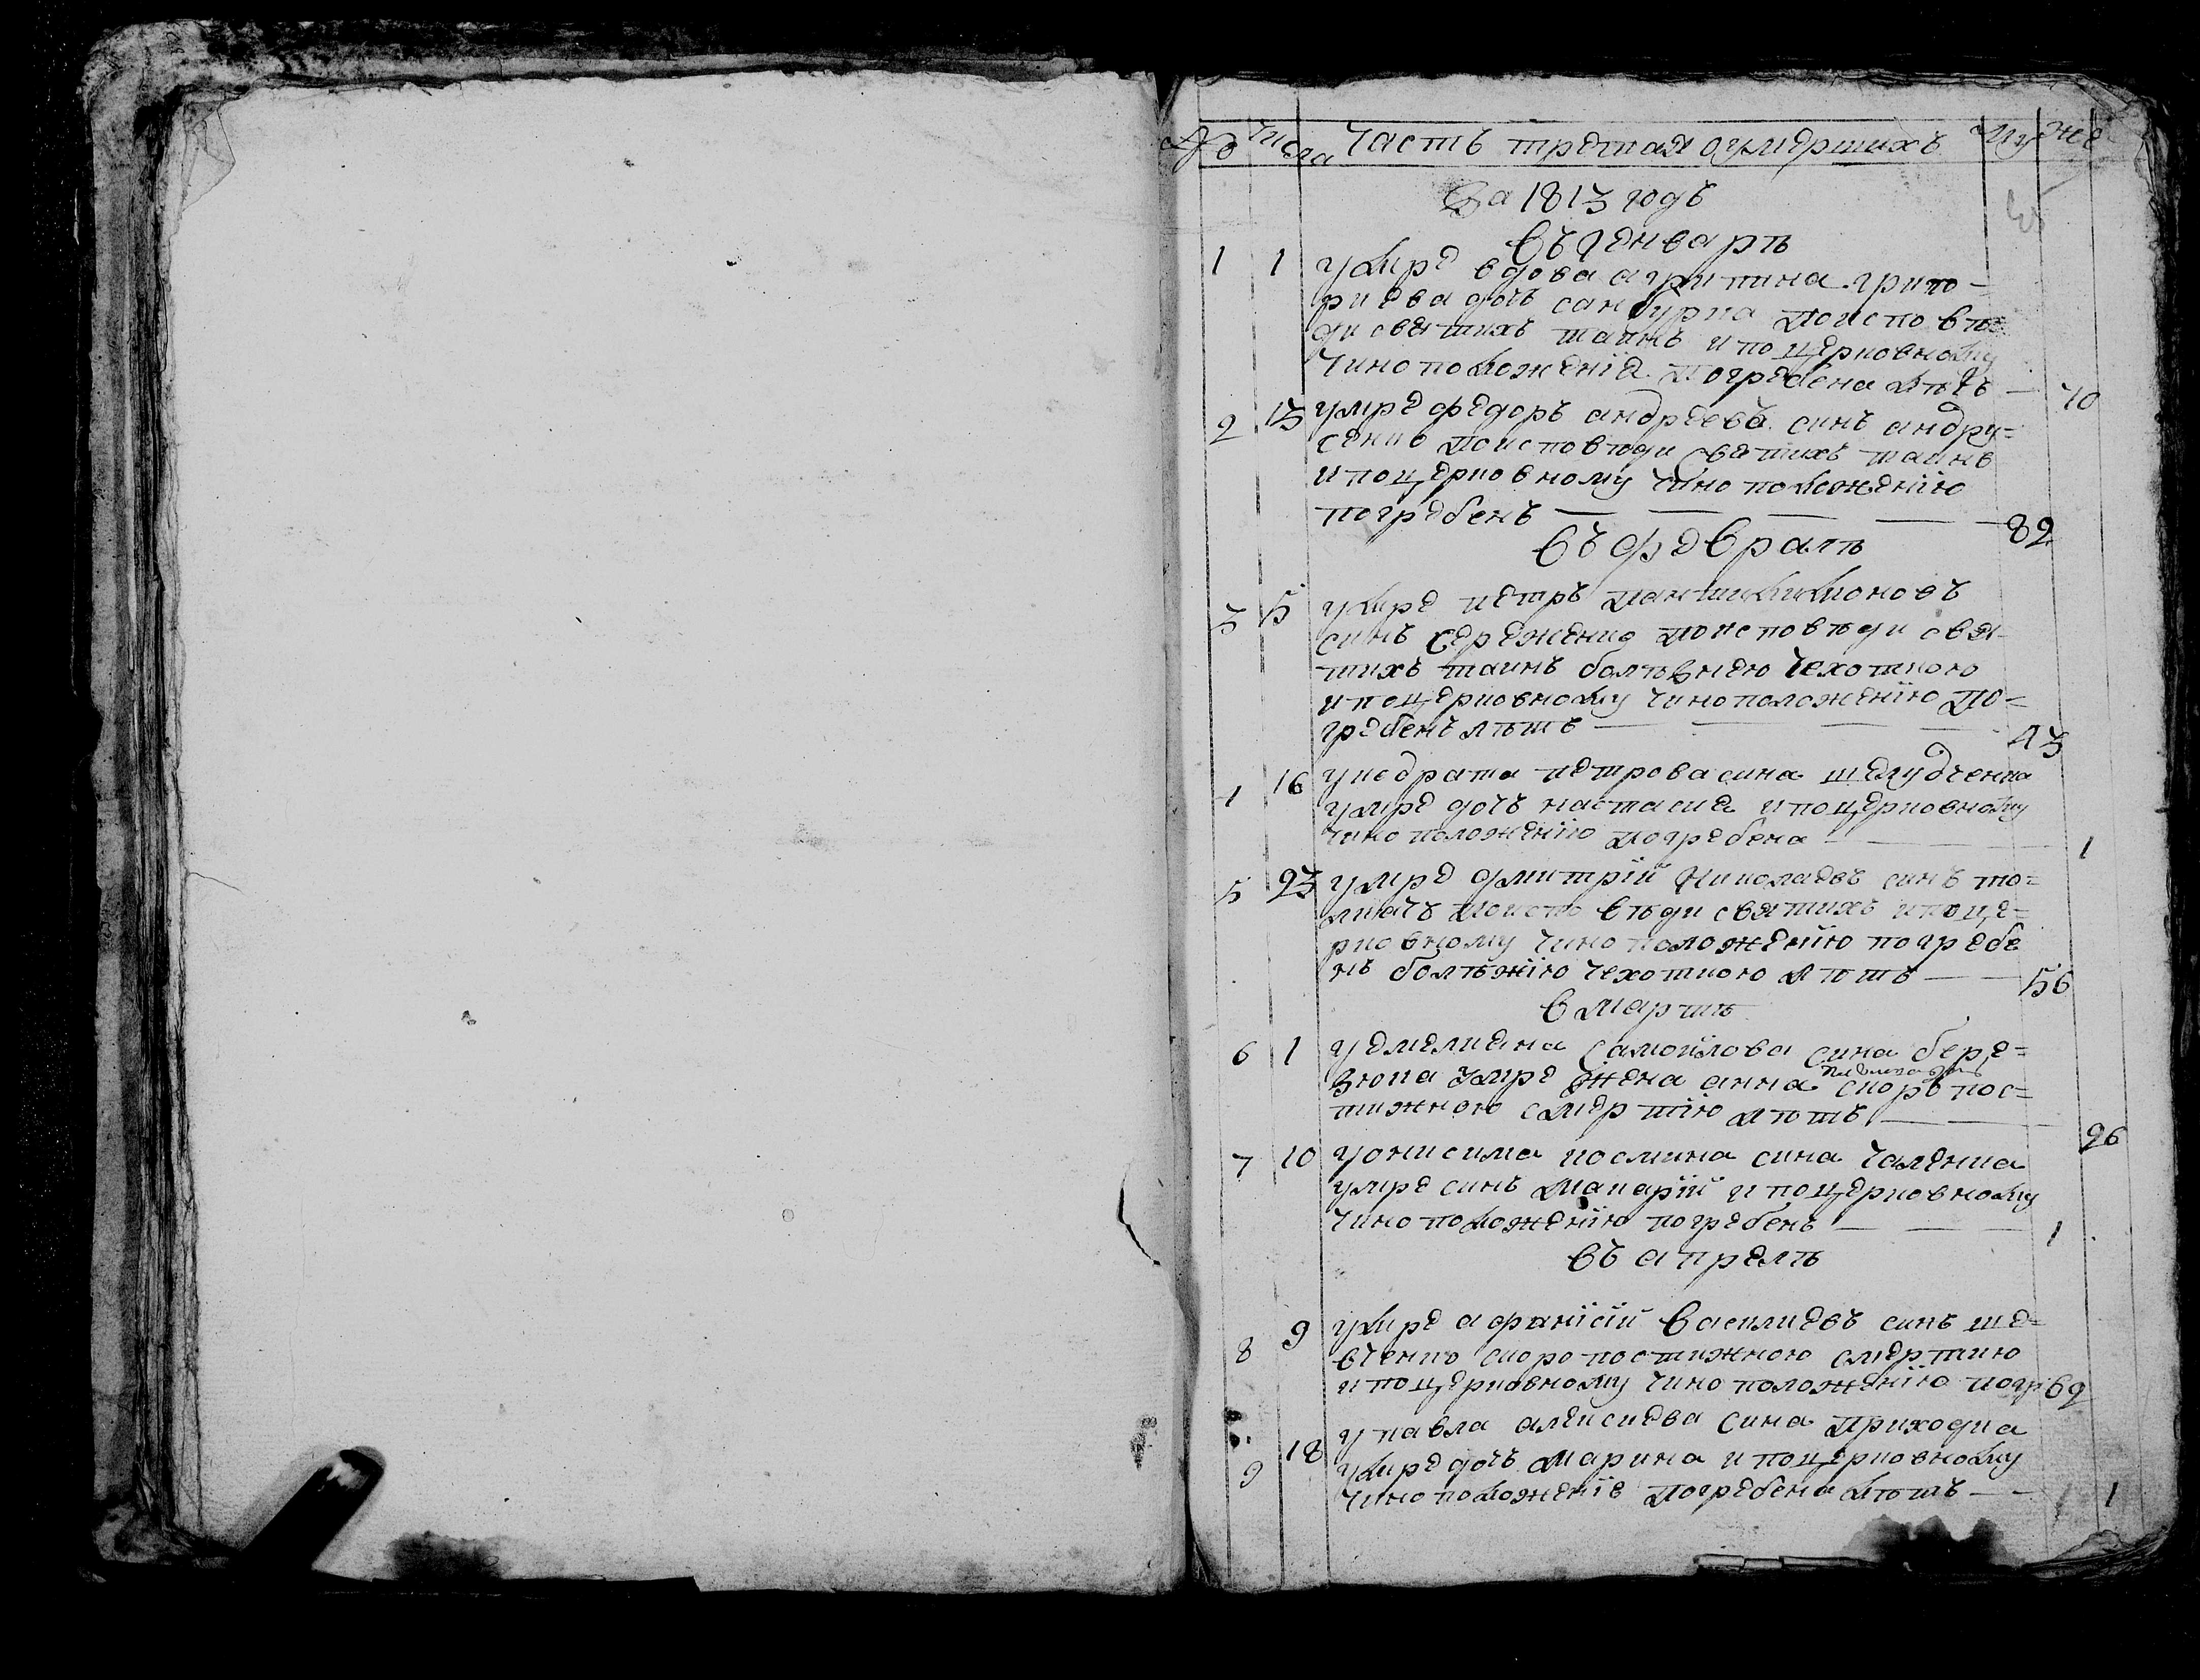 № числа Часть третая оумершихъ му же
За 1813 годъ
въ Генварѣ
1 1 умре вдова агрипина григо-
риева дочь санбурка по исповѣ
ди святихъ таинъ и по церковному
чиноположенїе погребена лѣтъ — 70
2 13 умре федоръ андреевъ синъ андру=
сенко по исповѣди святихъ таинъ
и по церковному чиноположенїю
погребенъ — — — — 82
въ февралѣ
3 5 умре петръ пантилимоновъ
синъ середженко по исповѣди свя-
тихъ таинъ болѣзнею чехоткою
и по церковному чиноположенїю по=
гребенъ лѣтъ — — — 43
4 16 у кодрата петрова сина шелудченка
умре дочь настасия и по церковному
чиноположенїю погребена — — 1
5 23 умре дмитрїй Николаевъ синъ то=
лмачъ по исповѣди святихъ и по це=
рковному чиноположенїю погребе
нъ болѣзнїю чехоткою лѣтъ — 56
в мартѣ
6 1 у емелияна самойлова сина бере=
зюка умре жена анна скоропос=
тижною смертїю лѣтъ — 26
7 10 у онисима космина сина галенка
умре синъ макарїй и по церковному
чиноположенїю погребенъ — — 1
въ апрелѣ
8 9 умре афанїсїй василиевъ синъ ше=
вченко скоропостижною смертию
и по церковному чиноположенїю погр 62
9 18 у павла алексиева сина приходка
умре дочь марина и по церковному
чиноположенїе погребена лѣтъ — 1